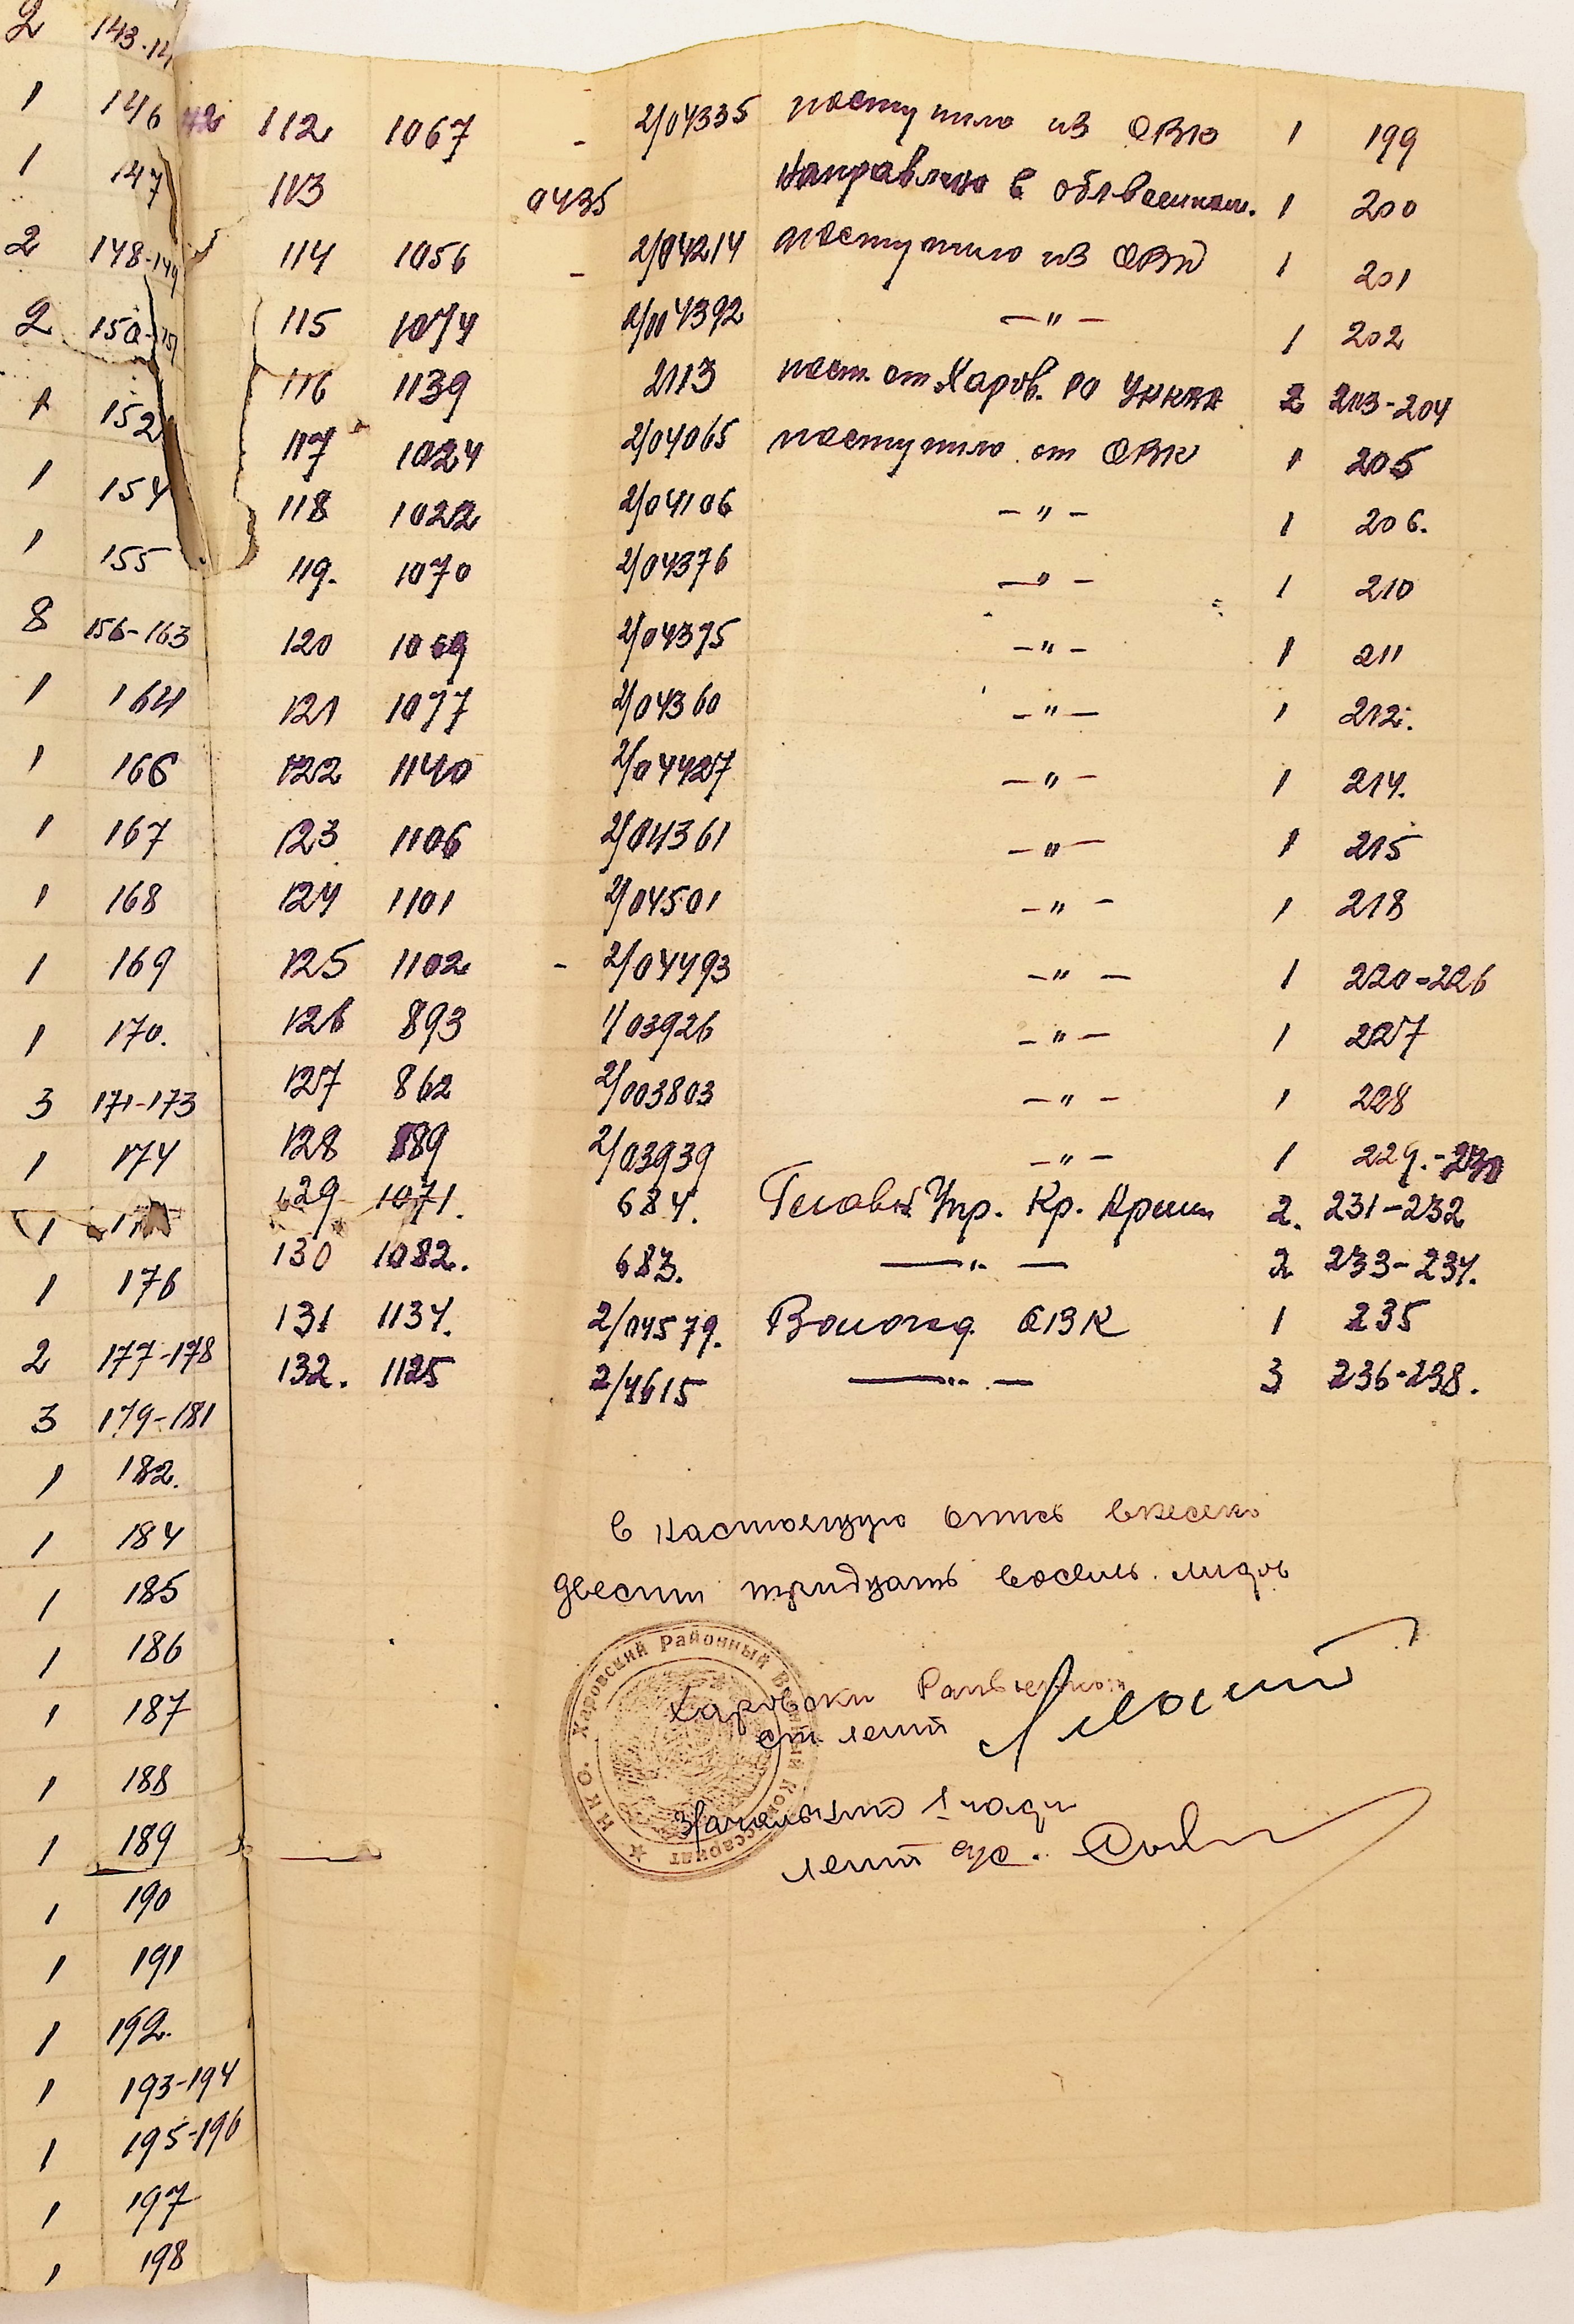 2 143-14
1 146
1 147
2 148-149
2 150-151
1 152
1 154
1 155
8 156-163
1 164
1 166
1 167
1 168
1 169
1 170.
3 171-173
1 174
1
1 176
2 177-178
3 179-181
1 182.
1 184
1 185
1 186
1 187
1 188
1 189
1 190
1 191
1 192.
1 193-194
1 195-196
1 197
1 198
42 112 1067 - 2/04335 поступило из ОВК 1 199
113 0435 направлено в облвоенком. 1 200
114 1056 - 2/04214 поступило из ОВК 1 201
115 1074 2/004392 —"— 1 202
116 1139 2113 пост. от Харов. РО УНКВД 2 203-204
117 1024 2/04065 поступило от ОВК 1 205
118 1022 2/04106 —"— 1 206.
119. 1070 2/04376 —"— 1 210
120 1069 2/04375 —"— 1 211
121 1077 2/04360 —"— 1 212.
122 1140 2/04427 —"— 1 214.
123 1106 2/04361 —"— 1 215
124 1101 2/04501 —"— 1 218
125 1102 - 2/04493 —"— 1 220-226
126 893 1/03926 —"— 1 227
127 862 2/003803 —"— 1 228
128 889 2/03939 —"— 1 229.-230
129 1071. 684. Главн. Упр. Кр. Армии 2. 231-232
130 1082. 683. —"— 2 233-234.
131 1134. 2/04579. Вологод. ОВК 1 235
132. 1125 2/4615 —"— 3 236-238.
В настоящую опись внесено
двести тридцать восемь листов
Харовский Райвоенком
ст. лейт
Начальник 1 части
лейт
★ НКО. Харовский Районный Военный Комиссариат